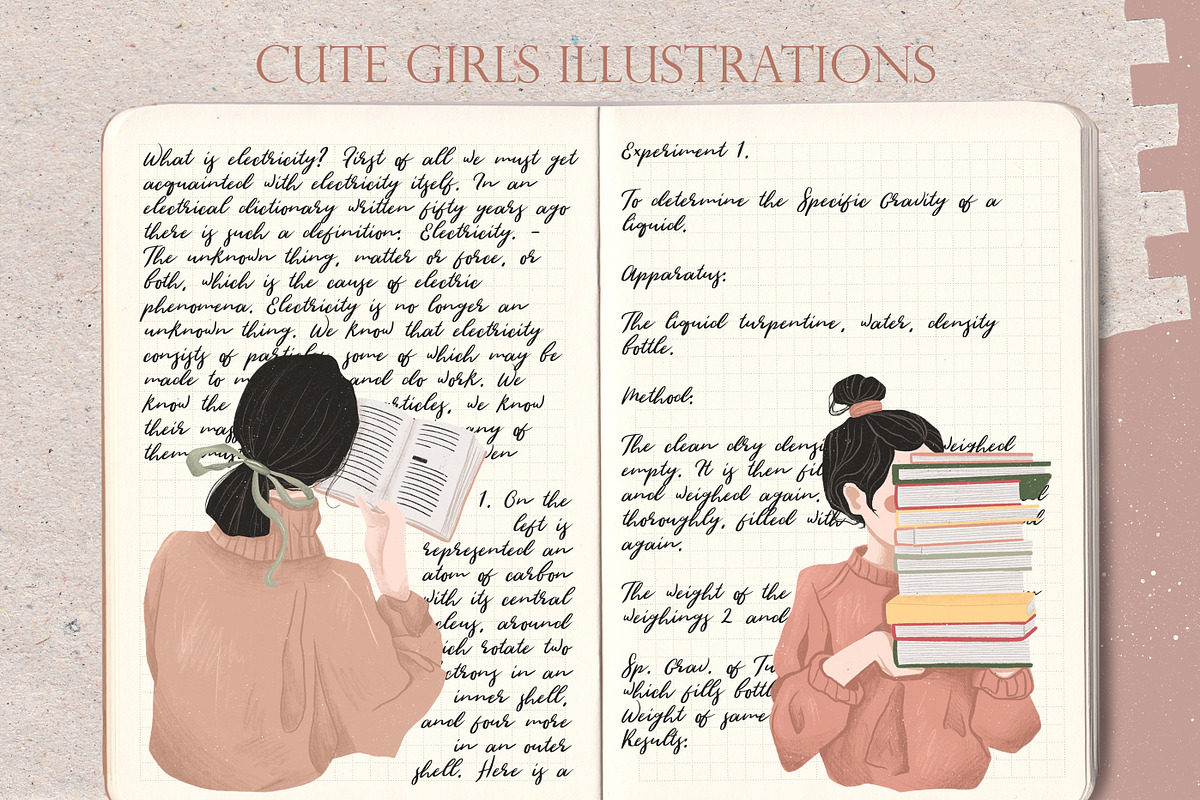 CUTE GIRLS ILLUSTRATIONS
What is electricity? First of all we must get
acquainted with electricity itself. In an
electrical dictionary written fifty years ago
there is such a definition: Electricity. -
The unknown thing, matter or force, or
both, which is the cause of electric
phenomena. Electricity is no longer an
unknown thing. We know that electricity
consists of some of which may be
made to and do work. We
know the we know
their any of
1. On the
left is
represented an
atom of carbon
with its central
around
rotate two
in an
inner shell,
and four more
in an outer
shell. Here is a
Experiment 1.
To determine the Specific Gravity of a
liquid.
Apparatus:
The liquid turpentine, water, density
bottle.
Method:
The clean dry weighed
empty. It is then
and weighed again.
thoroughly, filled with
again.
The weight of the
weighings 2 and
Sp. Grav. of
which fills
Weight of same
Results: